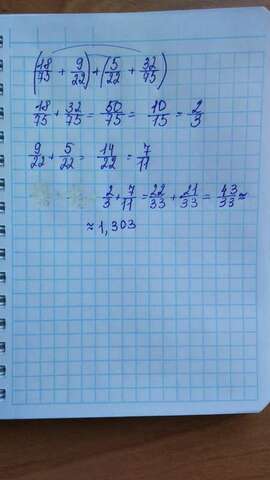 (18/75 + 9/22) + (5/22 + 32/75)
18/75 + 32/75 = 50/75 = 10/15 = 2/3
9/22 + 5/22 = 14/22 = 7/11
2/3 + 7/11 = 22/33 + 21/33 = 43/33 ≈
≈ 1,303